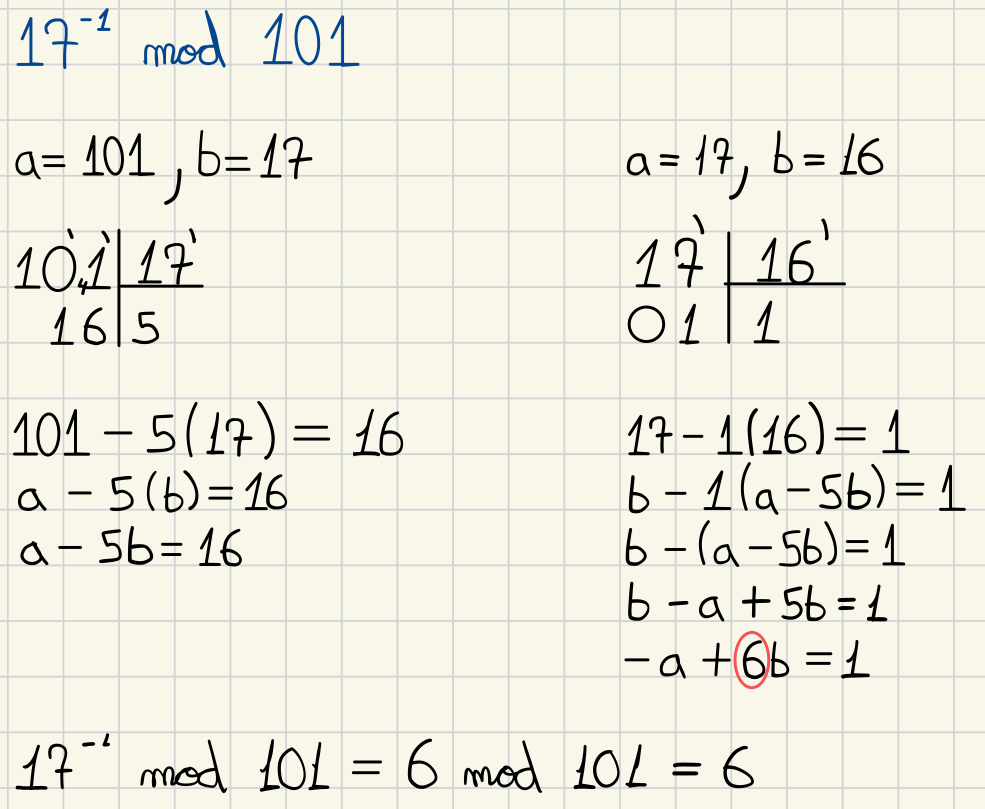 17⁻¹ mod 101
a = 101, b = 17
101 | 17
16 | 5
101 - 5(17) = 16
a - 5(b) = 16
a - 5b = 16
a = 17, b = 16
17 | 16
01 | 1
17 - 1(16) = 1
b - 1(a - 5b) = 1
b - (a - 5b) = 1
b - a + 5b = 1
-a + 6b = 1
17⁻¹ mod 101 = 6 mod 101 = 6